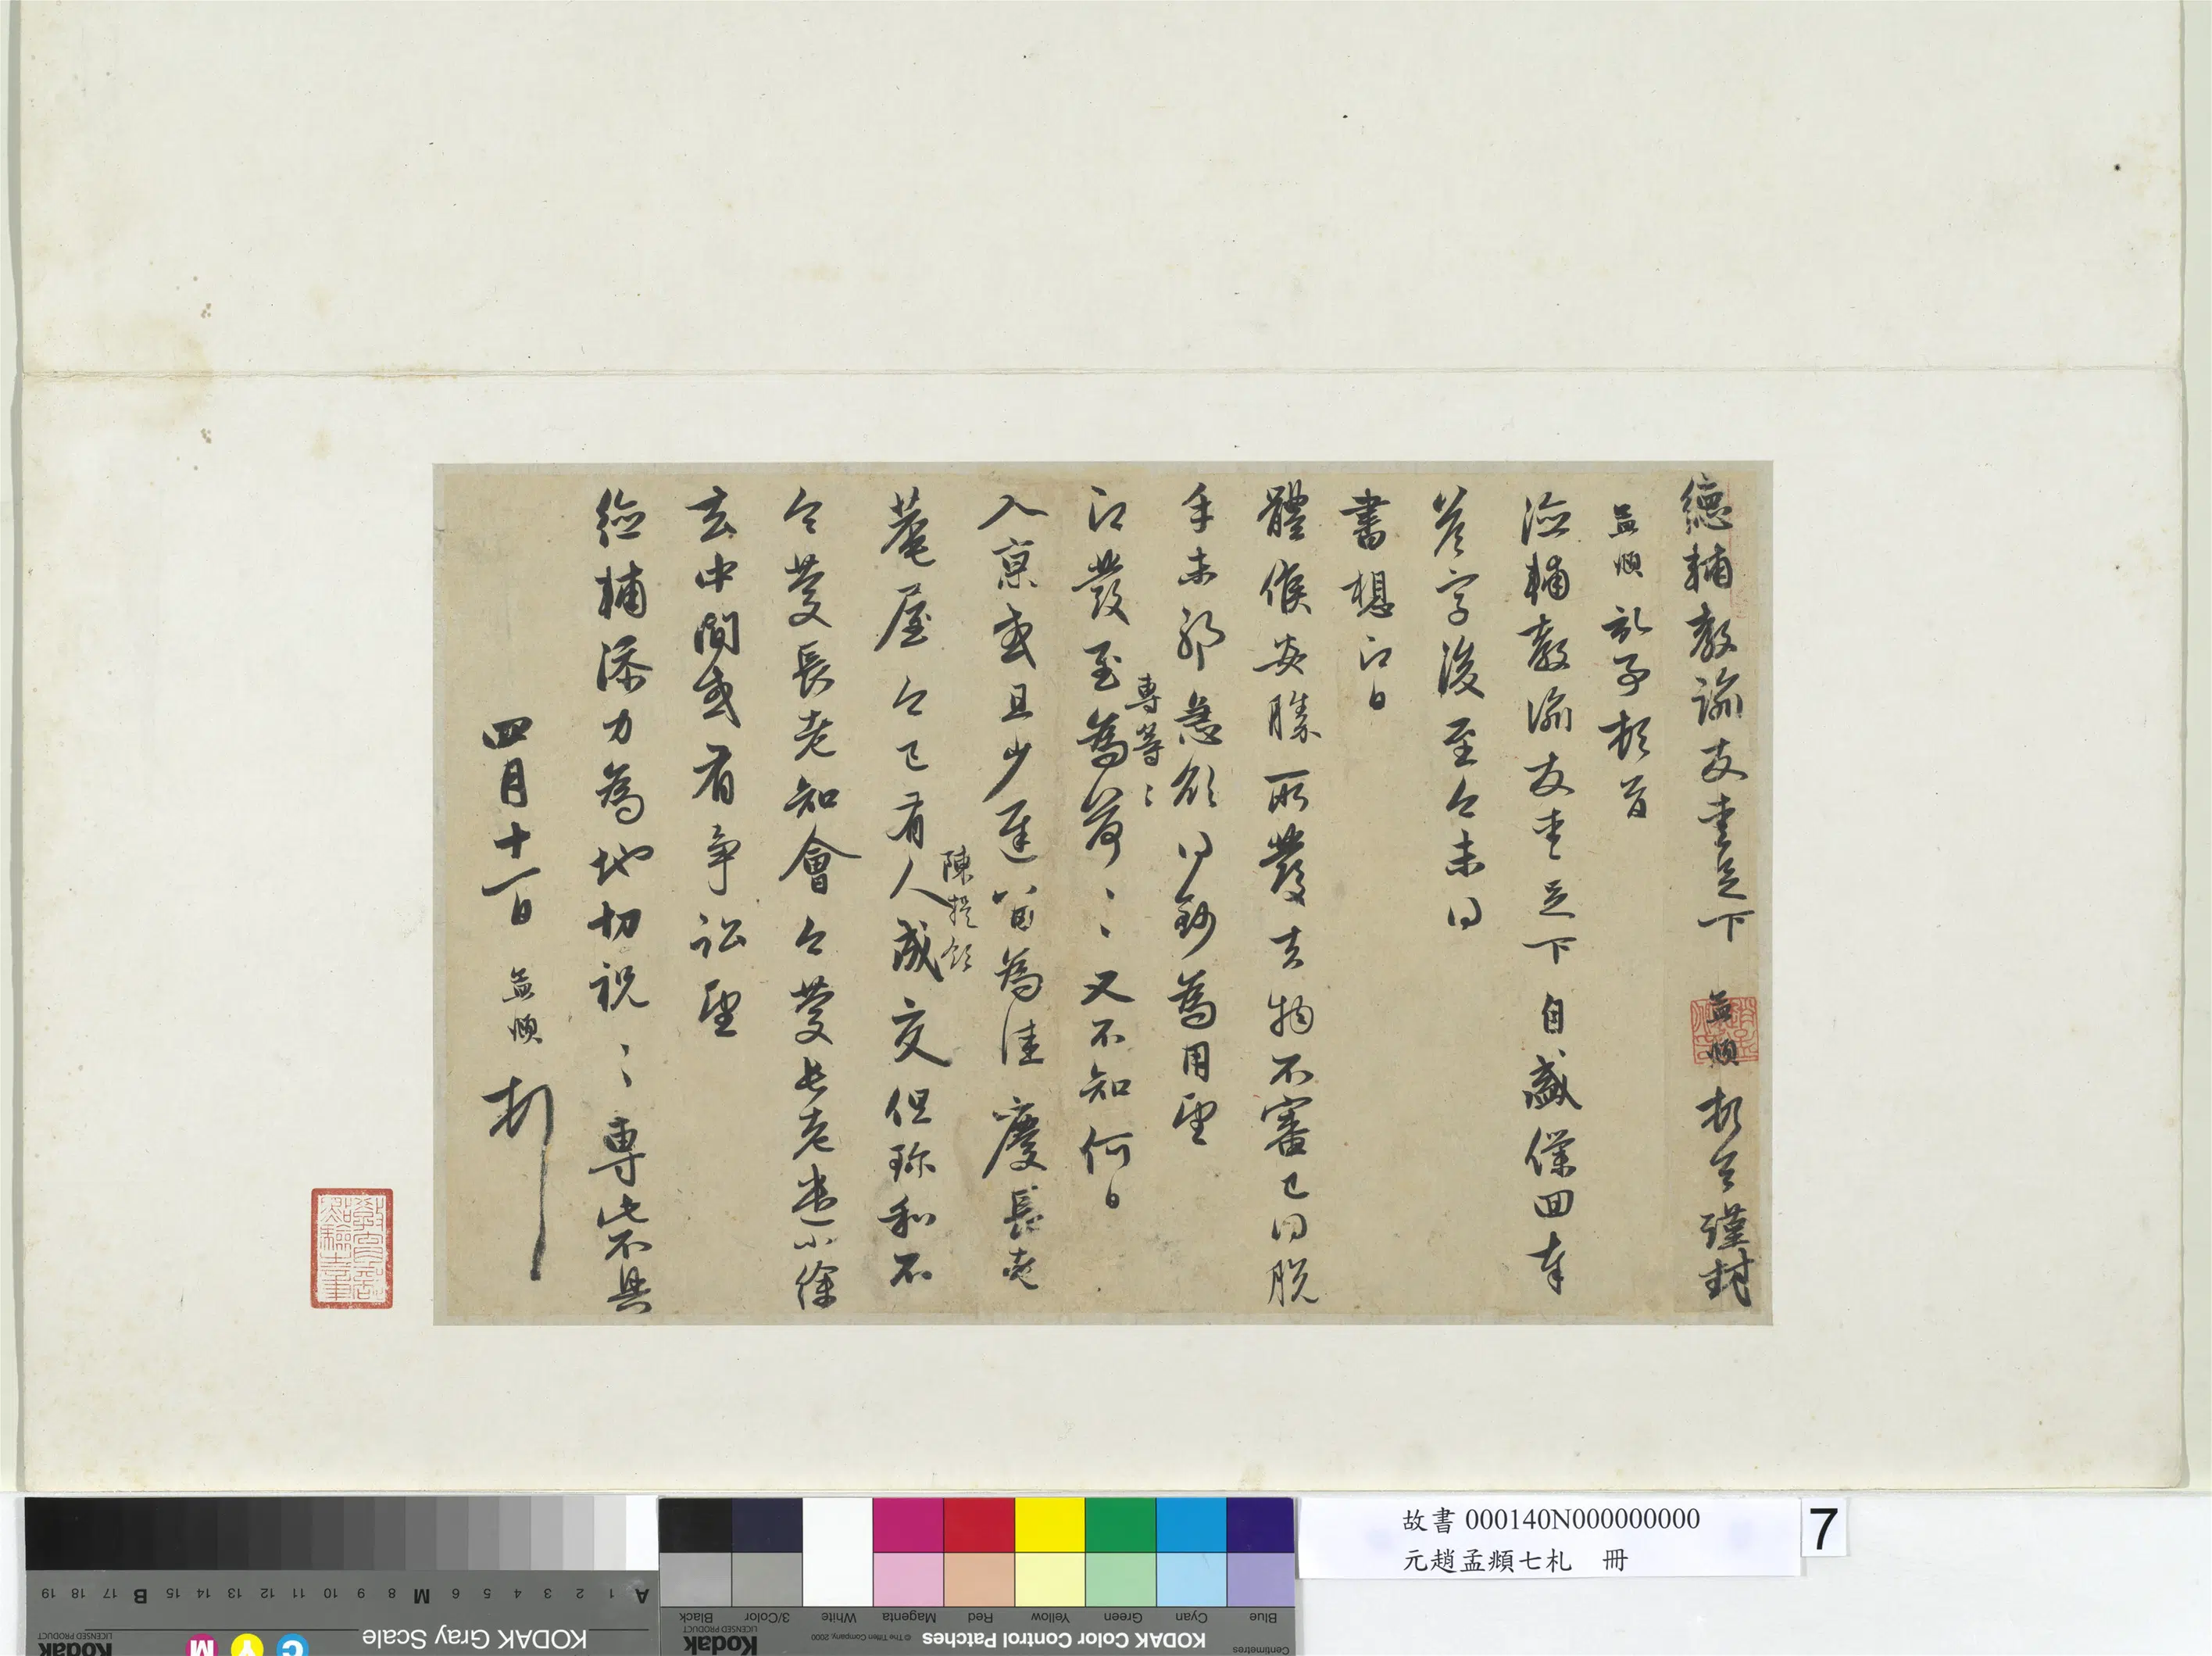 德輔教諭友愛足下 孟頫頓首謹封
孟頫記事頓首
德輔教諭友愛足下自盛僕回奉
答字後至今未得
書想即日
體候安勝所發去物不審已得脫
手未耶急欲得鈔為用望
即發至為荷〻又不知何日
專等〻
入京或且少遲留為佳慶長老
菴屋今已有人成交但珎和不
陳提領
今慶長老知會今慶長老甚不深
去中間或有爭訟望
德輔添力為地切祝〻專此不具
四月十一日 孟頫 頓首
故書 000140N000000000
元趙孟頫七札 冊
7
KODAK Gray Scale
A 1 2 3 4 5 6 M 8 9 10 11 12 13 14 15 B 17 18 19
C Y M
Kodak
LICENSED PRODUCT
KODAK Color Control Patches
© The Tiffen Company, 2000
Kodak
LICENSED PRODUCT
Centimetres
Blue Cyan Green Yellow Red Magenta White 3/Color Black